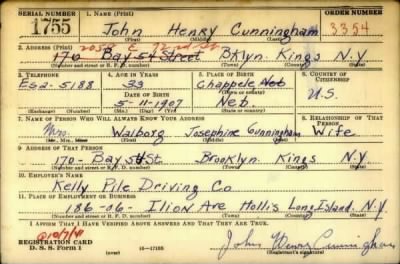 SERIAL NUMBER 1. NAME (Print) ORDER NUMBER
1755 John Henry Cunningham 3354
(First) (Middle) (Last)
2058 E. 72nd St.
2. ADDRESS (Print)
170 Bay 54 Street Bklyn. Kings N.Y
(Number and street or R. F. D. number) (Town) (County) (State)
3. TELEPHONE 4. AGE IN YEARS 5. PLACE OF BIRTH 6. COUNTRY OF CITIZENSHIP
Es2-5188 33 Chappele Neb
DATE OF BIRTH (Town or county)
5-11-1907 Neb. U.S
(Exchange) (Number) (Mo.) (Day) (Yr.) (State or country)
7. NAME OF PERSON WHO WILL ALWAYS KNOW YOUR ADDRESS 8. RELATIONSHIP OF THAT PERSON
Mrs. Walborg Josephine Cunningham Wife
(Mr., Mrs., Miss) (First) (Middle) (Last)
9. ADDRESS OF THAT PERSON
170-Bay 54 St. Brooklyn. Kings N.Y.
(Number and street or R. F. D. number) (Town) (County) (State)
10. EMPLOYER'S NAME
Kelly Pile Driving Co
11. PLACE OF EMPLOYMENT OR BUSINESS
186-06- Ilion Ave Hollis Long Island. N.Y.
(Number and street or R. F. D. number) (Town) (County) (State)
I AFFIRM THAT I HAVE VERIFIED ABOVE ANSWERS AND THAT THEY ARE TRUE.
REGISTRATION CARD
D. S. S. Form 1 16—17105 John Henry Cunningham
(Registrant's signature)